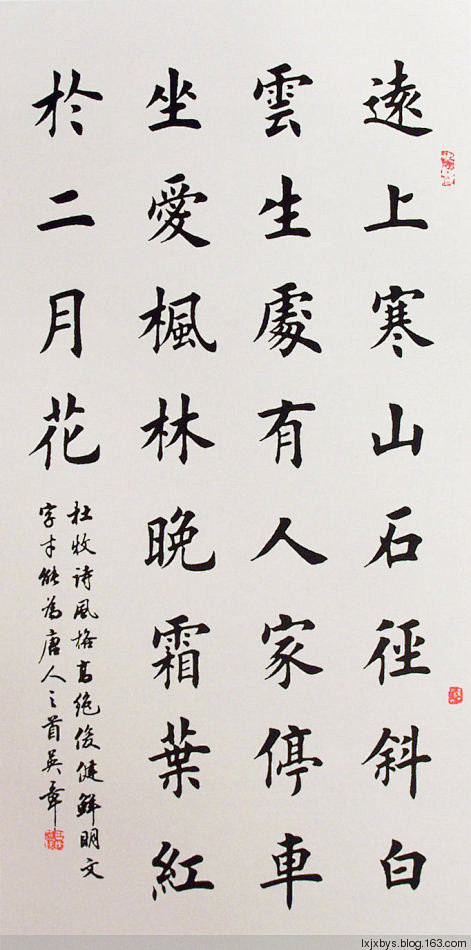 遠上寒山石徑斜白
雲生處有人家停車
坐愛楓林晚霜葉紅
於二月花
杜牧詩風格高絶俊健鮮明文
字才能為唐人之首英章
lxjxbys.blog.163.com